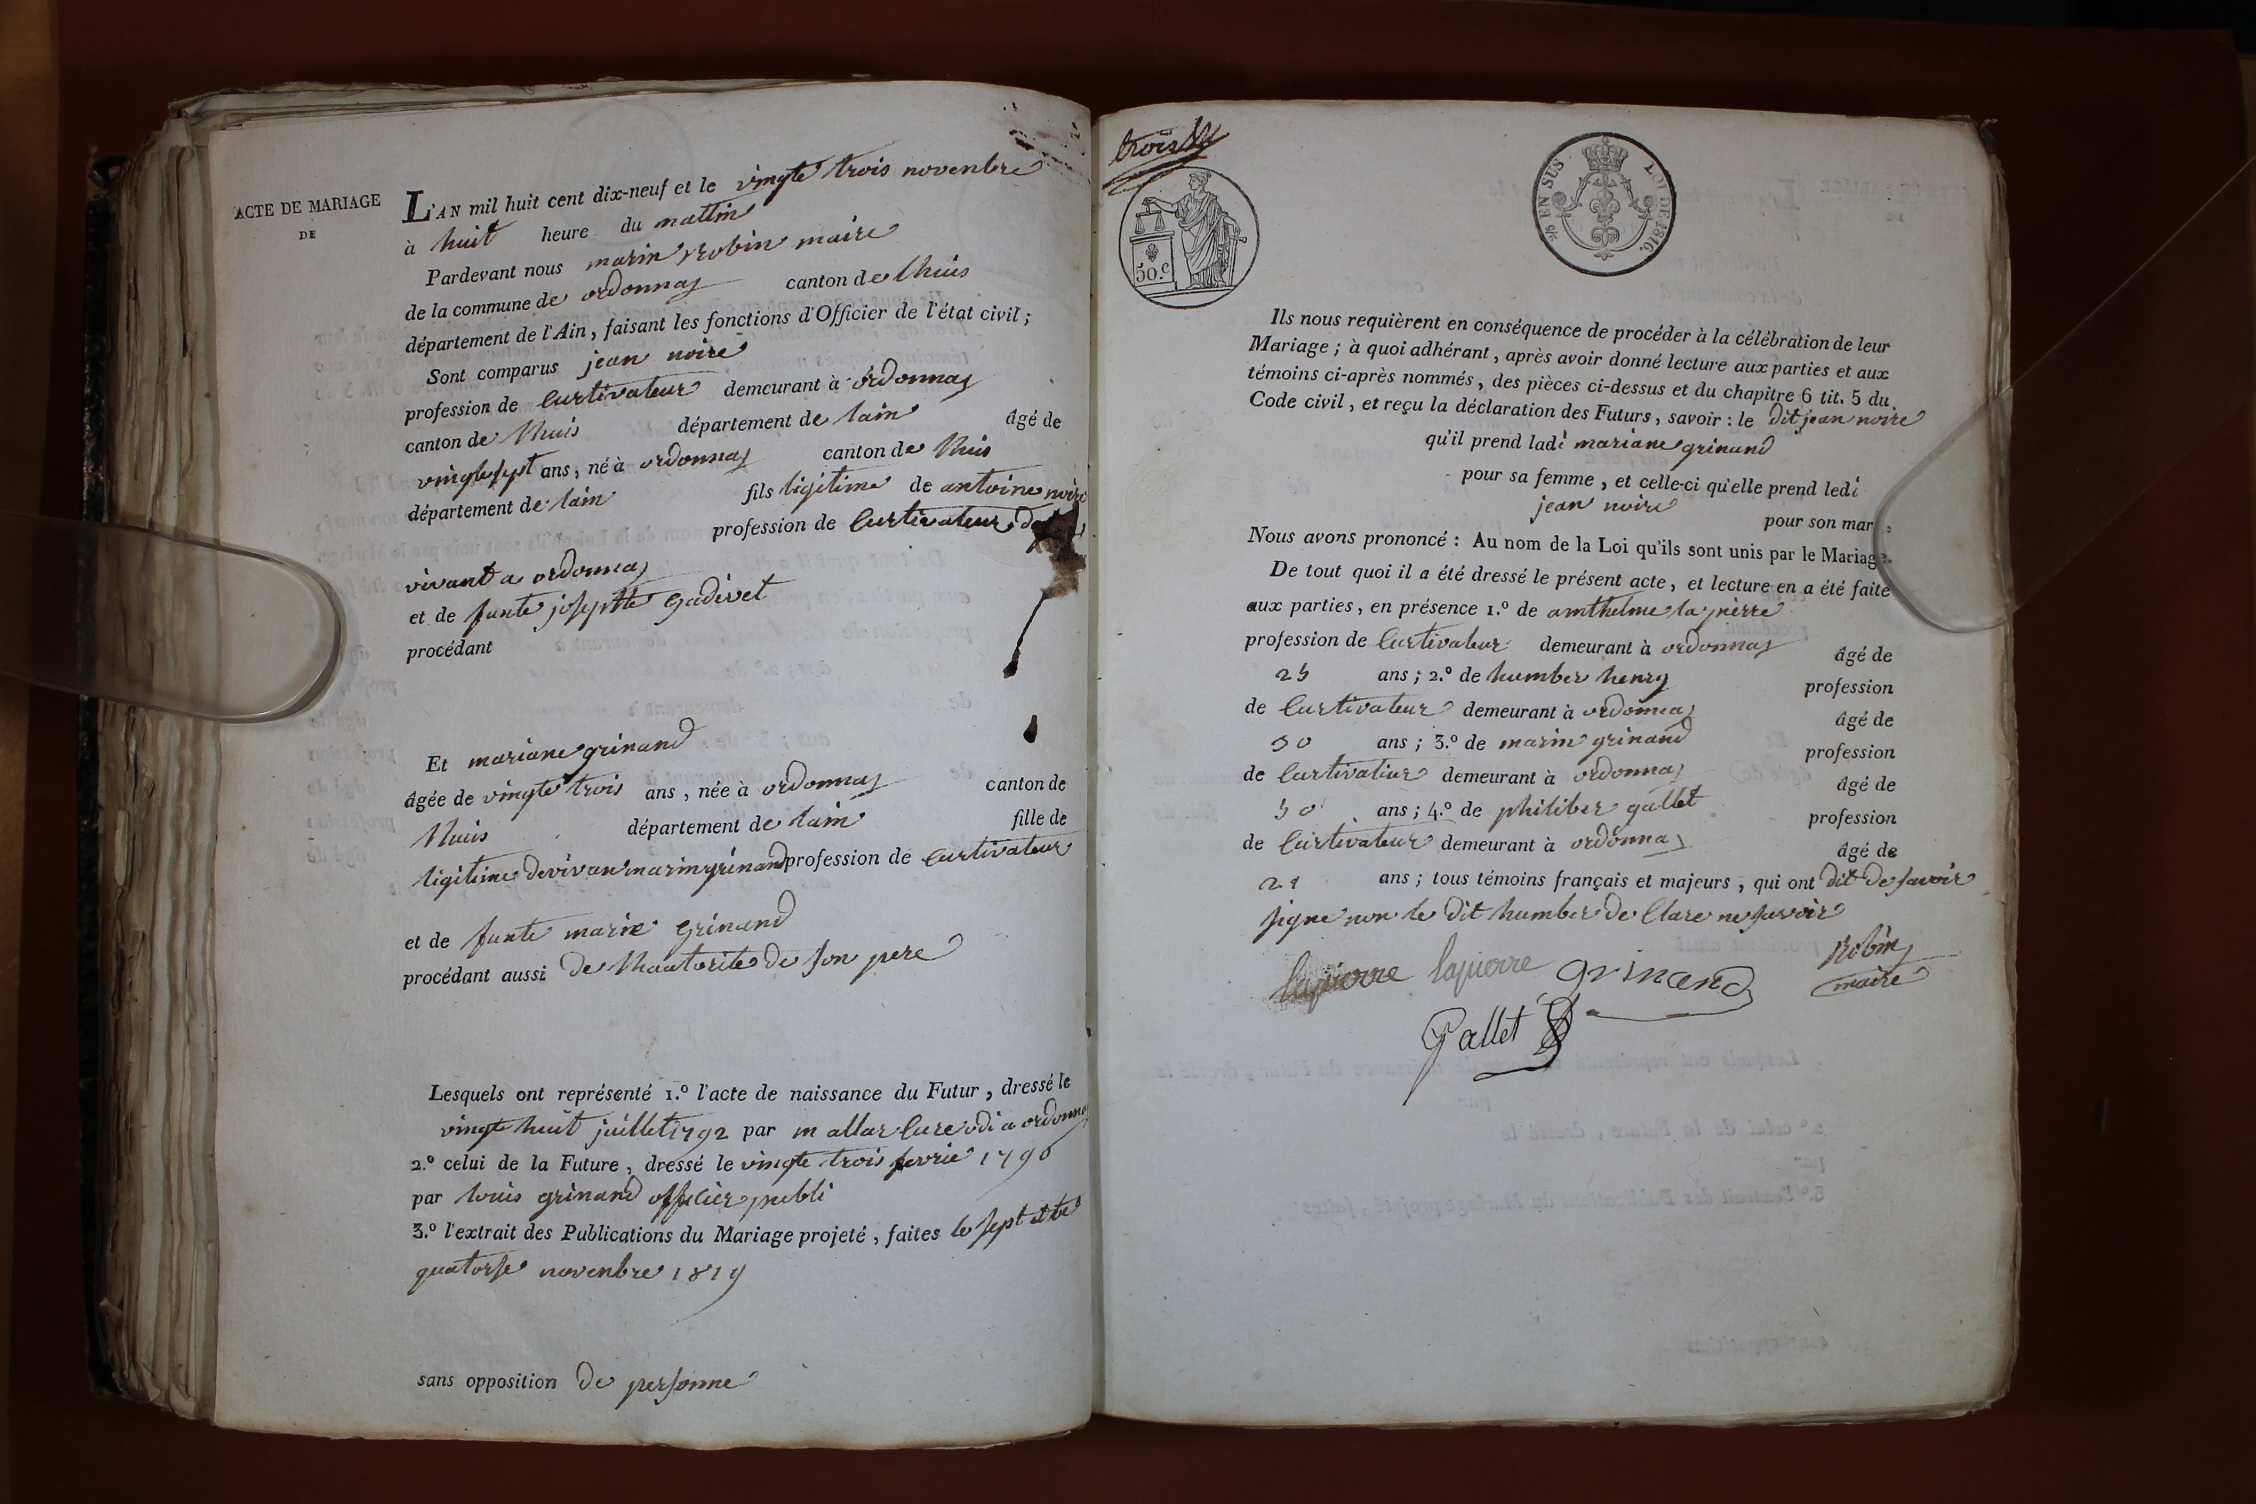 ACTE DE MARIAGE
DE
L'AN mil huit cent dix-neuf et le vingte trois novenbre
à huit heure du mattin
Pardevant nous marin robin maire
de la commune de ordonnas canton de lhuis
département de l'Ain, faisant les fonctions d'Officier de l'état civil;
Sont comparus jean noire
profession de Curtivateur demeurant à ordonnas
canton de lhuis département de lain âgé de
vingtesept ans, né à ordonnas canton de lhuis
département de lain fils ligitime de antoine noire
profession de Curtivateur
vivant a ordonnas
et de funte josephte gadivet
procédant
Et mariane grinand
âgée de vingte trois ans, née à ordonnas canton de
lhuis département de lain fille de
ligitime de vivan marin grinand profession de Curtivateur
et de funte marie grinand
procédant aussi de lhautorite de son pere
Lesquels ont représenté 1.º l'acte de naissance du Futur, dressé le
vingte huit juillet 1792 par m allar Cure odi a ordonnas
2.º celui de la Future, dressé le vingte trois fevrie 1796
par louis grinand officier publi
3.º l'extrait des Publications du Mariage projeté, faites le sept et le
quatorse novenbre 1819
sans opposition de personne
trois
EN SUS LOI DE 1816.
50.c
Ils nous requièrent en conséquence de procéder à la célébration de leur
Mariage; à quoi adhérant, après avoir donné lecture aux parties et aux
témoins ci-après nommés, des pièces ci-dessus et du chapitre 6 tit. 5 du
Code civil, et reçu la déclaration des Futurs, savoir: le dit jean noire
qu'il prend ladi mariane grinand
pour sa femme, et celle-ci qu'elle prend ledi
jean noire pour son mar
Nous avons prononcé: Au nom de la Loi qu'ils sont unis par le Mariage.
De tout quoi il a été dressé le présent acte, et lecture en a été faite
aux parties, en présence 1.º de amthelme la pierre
profession de Curtivateur demeurant à ordonnas âgé de
25 ans; 2.º de humber henry profession
de Curtivateur demeurant à ordonnas âgé de
30 ans; 3.º de marin grinand profession
de Curtivateur demeurant à ordonnas âgé de
50 ans; 4.º de philiber gallet profession
de Curtivateur demeurant à ordonnas âgé de
21 ans; tous témoins français et majeurs, qui ont dit de savoir
signe non le dit humber de Clare ne savoir
lapierre lapierre grinand Robin
maire
Gallet